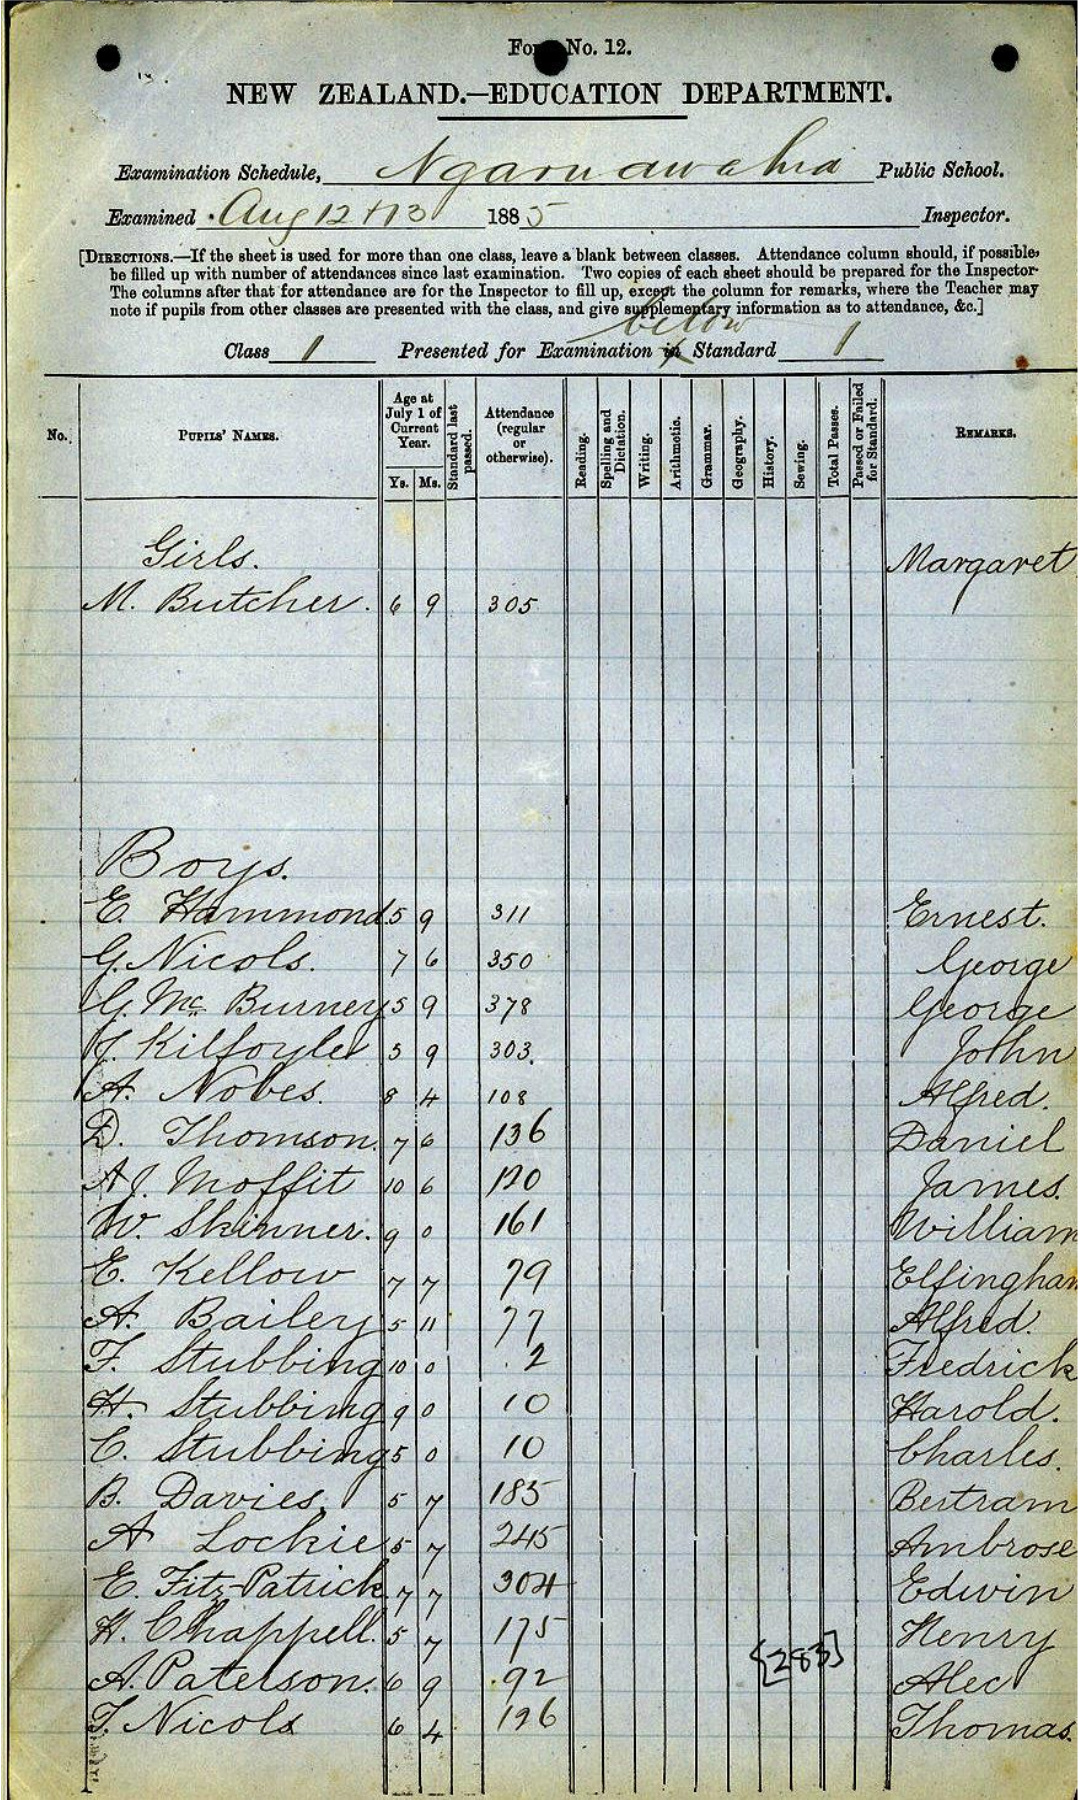 Form No. 12.
NEW ZEALAND.—EDUCATION DEPARTMENT.
Examination Schedule, Ngaruawahia Public School.
Examined Aug 12 & 13 1885 Inspector.
[DIRECTIONS.—If the sheet is used for more than one class, leave a blank between classes. Attendance column should, if possible,
be filled up with number of attendances since last examination. Two copies of each sheet should be prepared for the Inspector.
The columns after that for attendance are for the Inspector to fill up, except the column for remarks, where the Teacher may
note if pupils from other classes are presented with the class, and give supplementary information as to attendance, &c.]
below
Class 1 Presented for Examination in Standard 1
No. PUPILS' NAMES. Age at July 1 of Current Year. Ys. Ms. Standard last passed. Attendance (regular or otherwise). Reading. Spelling and Dictation. Writing. Arithmetic. Grammar. Geography. History. Sewing. Total Passes. Passed or Failed for Standard. REMARKS.
Girls. Margaret
M. Butcher. 6 9 305
Boys.
E. Hammond 5 9 311 Ernest.
G. Nicols. 7 6 350 George
G. McBurney 5 9 378 George
J. Kilfoyle 5 9 303. John
A. Nobes. 8 4 108 Alfred.
D. Thomson. 7 6 136 Daniel
A J. Moffit 10 6 120 James.
W. Skinner. 9 0 161 William
E. Kellow 7 7 79 Elfingham
A. Bailey 5 11 77 Alfred.
F. Stubbing 10 0 2 Fredrick
H. Stubbing 9 0 10 Harold.
C. Stubbing 5 0 10 Charles.
B. Davies. 5 7 185 Bertram
A Lockie 5 7 245 Ambrose
E. Fitz-Patrick 7 7 304 Edwin
H. Chappell. 5 7 175 Henry
[283]
A. Paterson. 6 9 92 Alec
T. Nicols 6 4 126 Thomas.